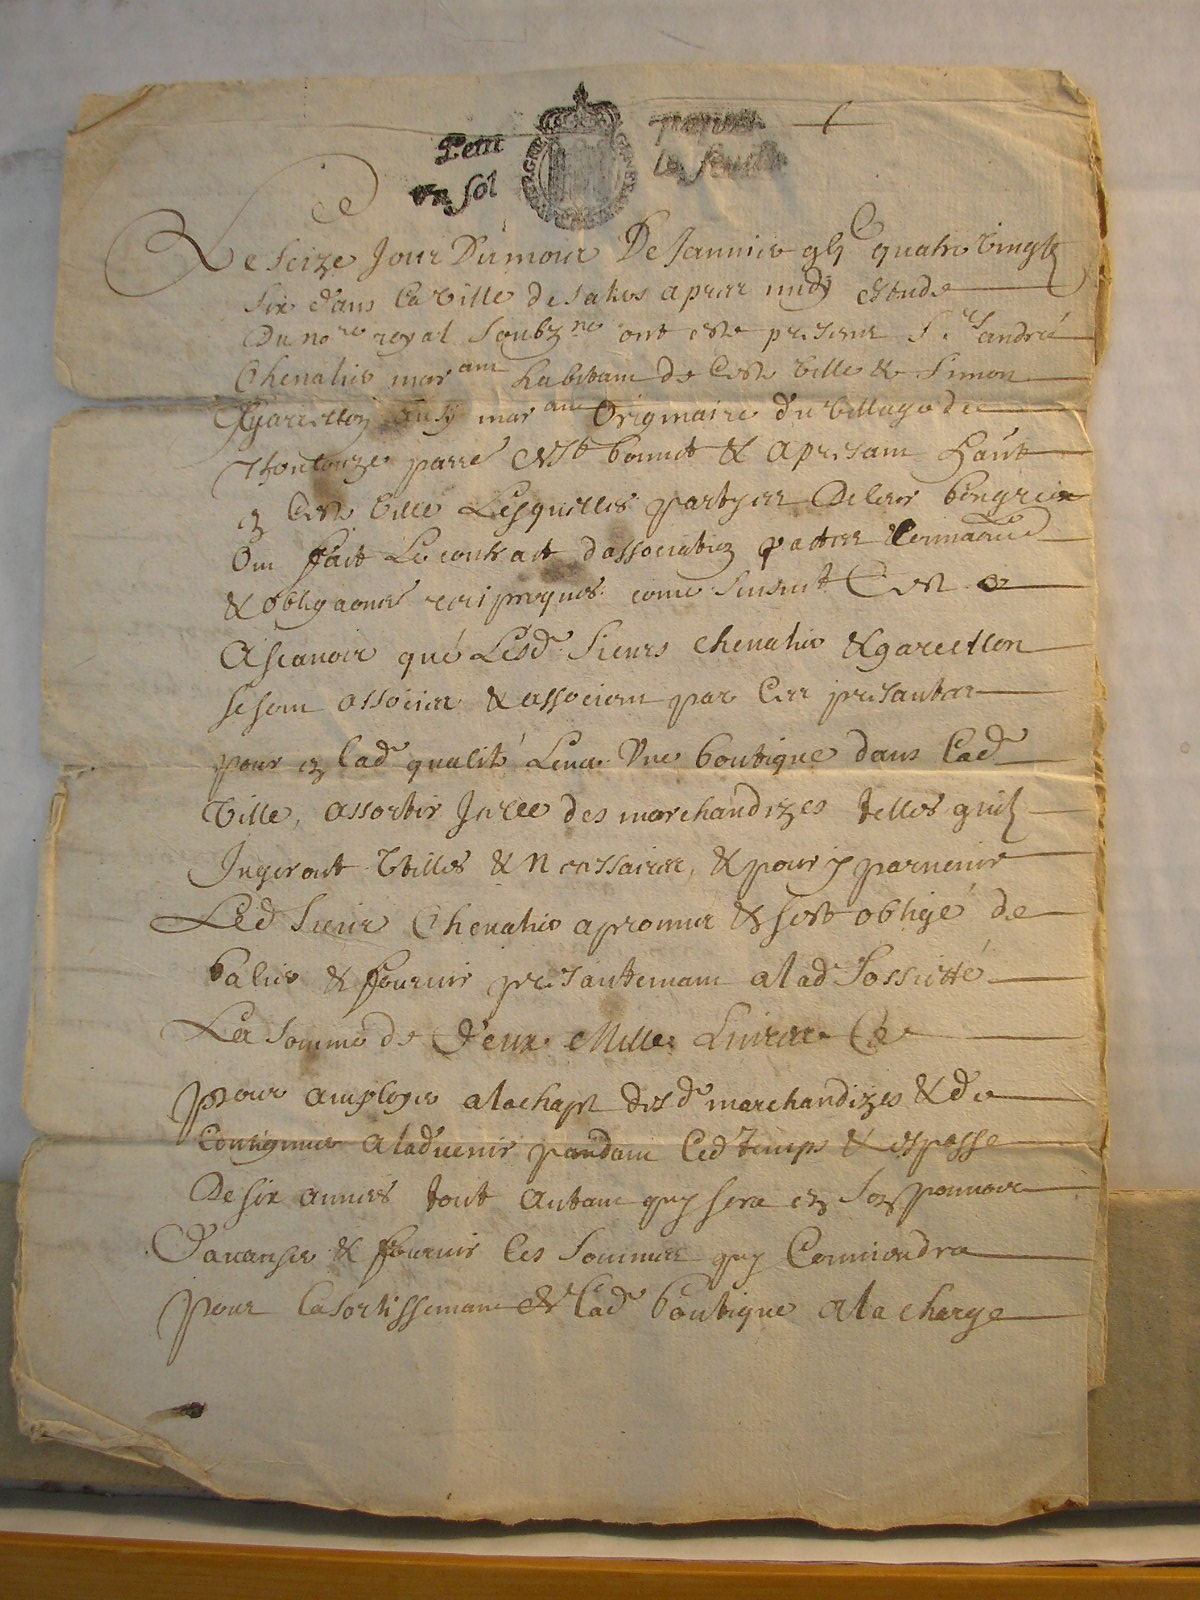 Petit papier
un sol la feuille
Le seize Jour Du mois De Januier quatre vingtz
six dans La ville de apres midy estude
Du no.re royal soubz.ne ont este presens Sr andré
Cheualier mar.ant habitant de Ceste ville & Simon
ausy mar.ant Originaire du village de
bonnet & apresant
Ceste ville Lesquelles partyes De leur bon gré
Ont fait Le contrat d'association pactes Conuances
& obligaons reciproques come sensuit Cest a
Ascauoir que Lesd. Sieurs cheualier & garcetton
se sont associes & associent par Ces presantes
pour en lad. qualité Leuer Vne boutique dans Lad.
Ville, assortir Icelle des marchandizes telles quilz
Jugeront Vtilles & Necessaires, & pour y paruenir
Led Sieur Cheualier a promis & sest obligé de
balier & fournir presantemant a lad Sossietté
La somme de Deux Mille Liures
pour amployer a lachapt desd. marchandizes & de
Continuer a laduenir pandant Led temps & espasse
De six annees tout autant quy sera en son pouuoir
D'auanser & fournir Les sommes quy Conuiendra
pour Lasortissemant de Lad. boutique a la charge